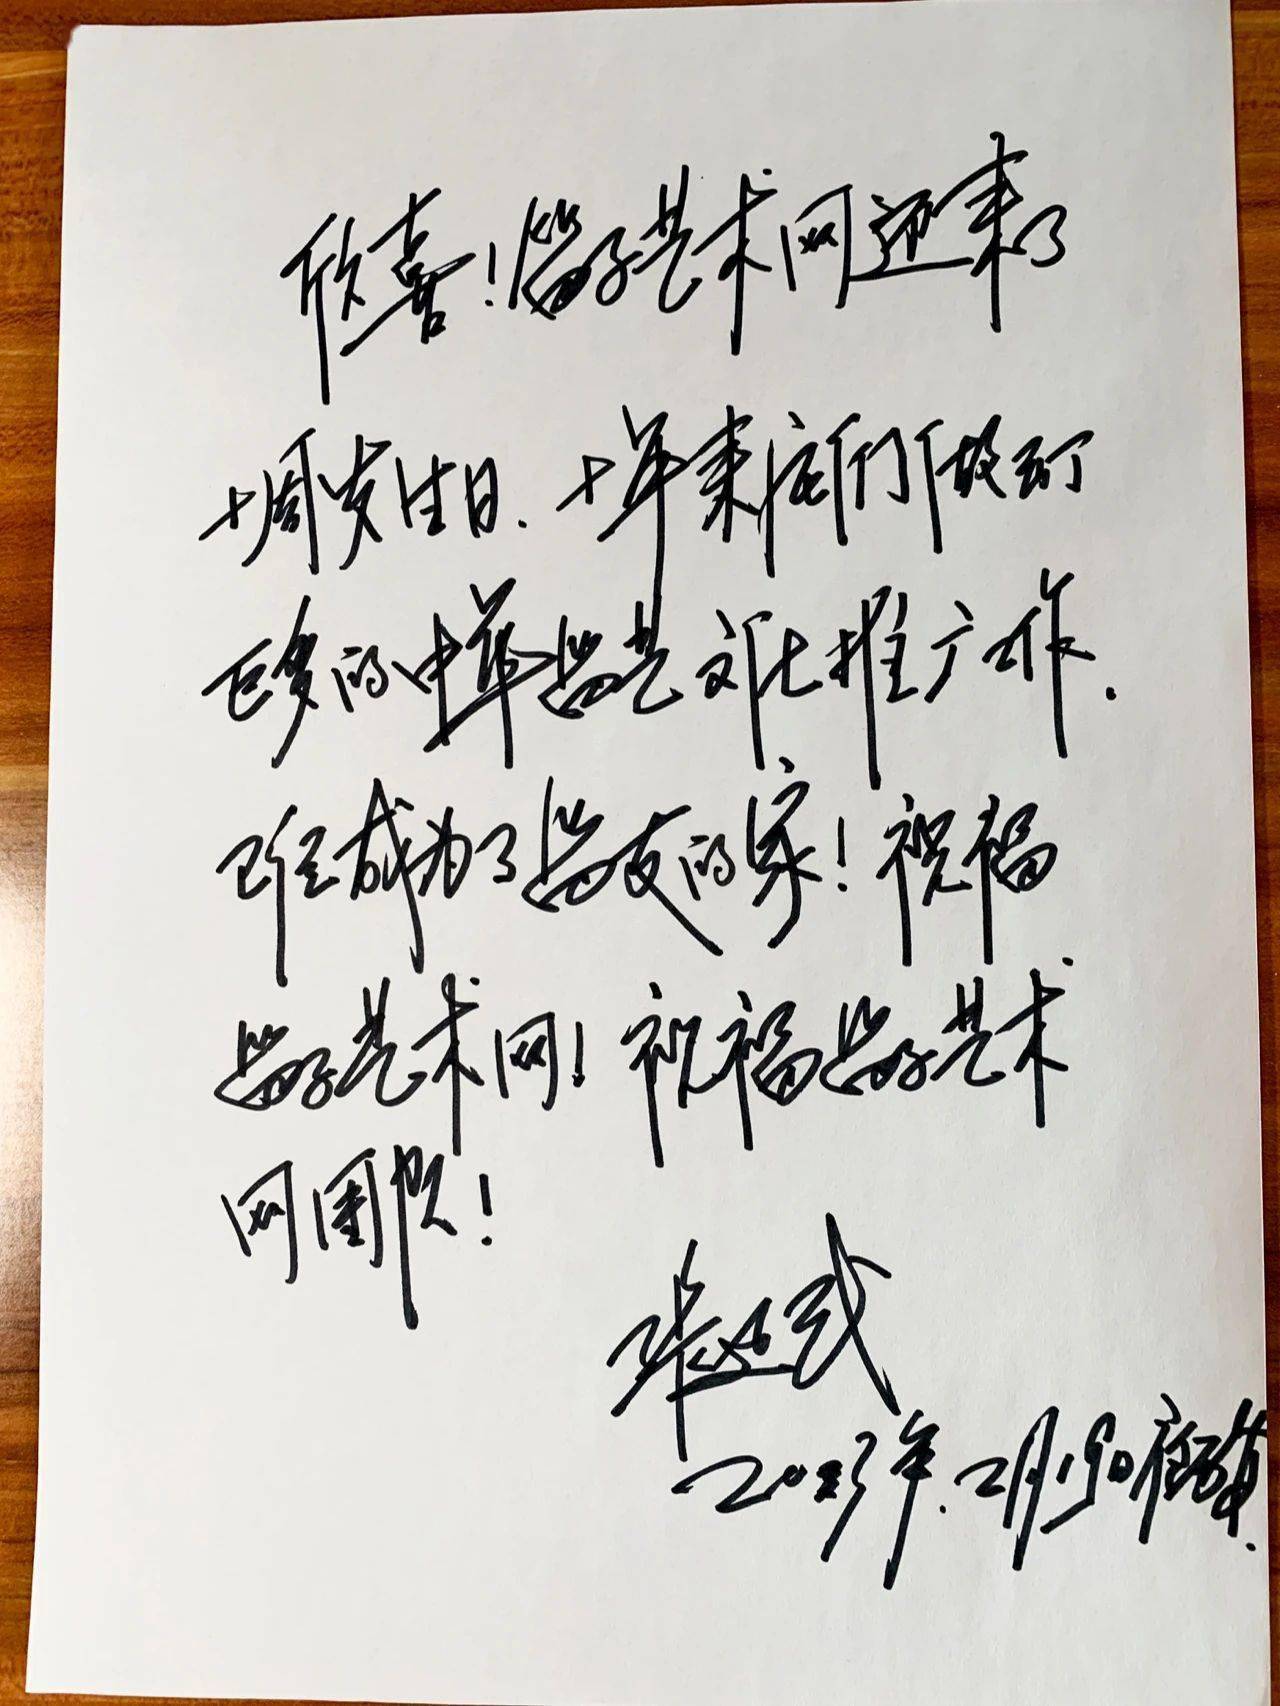 欣喜！笛子艺术网迎来了
十周岁生日、十年来你们做了
巨多的中华笛艺文化推广工作．
已经成为了笛友的家！祝福
笛子艺术网！祝福笛子艺术
网团队！
张延武
2023年．2月19日